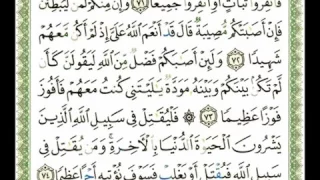 فَانفِرُوا۟ ثُبَاتٍ أَوِ ٱنفِرُوا۟ جَمِيعًا ﴿٧١﴾ وَإِنَّ مِنكُمْ لَمَن لَّيُبَطِّئَنَّ
فَإِنْ أَصَٰبَتْكُم مُّصِيبَةٌ قَالَ قَدْ أَنْعَمَ ٱللَّهُ عَلَىَّ إِذْ لَمْ أَكُن مَّعَهُمْ
شَهِيدًا ﴿٧٢﴾ وَلَئِنْ أَصَٰبَكُمْ فَضْلٌ مِّنَ ٱللَّهِ لَيَقُولَنَّ كَأَن
لَّمْ تَكُنۢ بَيْنَكُمْ وَبَيْنَهُۥ مَوَدَّةٌ يَٰلَيْتَنِى كُنتُ مَعَهُمْ فَأَفُوزَ
فَوْزًا عَظِيمًا ﴿٧٣﴾ فَلْيُقَٰتِلْ فِى سَبِيلِ ٱللَّهِ ٱلَّذِينَ
يَشْرُونَ ٱلْحَيَوٰةَ ٱلدُّنْيَا بِٱلْءَاخِرَةِ وَمَن يُقَٰتِلْ فِى
سَبِيلِ ٱللَّهِ فَيُقْتَلْ أَوْ يَغْلِبْ فَسَوْفَ نُؤْتِيهِ أَجْرًا عَظِيمًا ﴿٧٤﴾